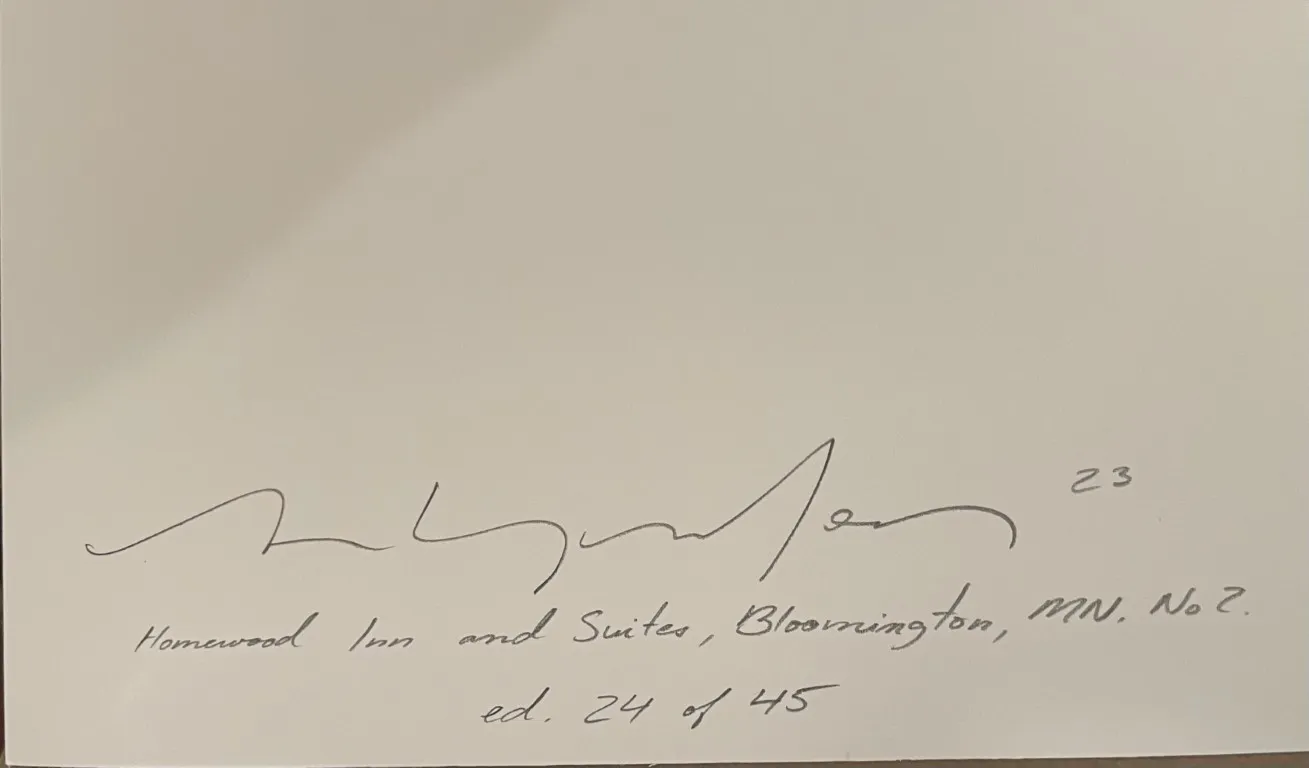 23
Homewood Inn and Suites, Bloomington, MN. No 2.
ed. 24 of 45